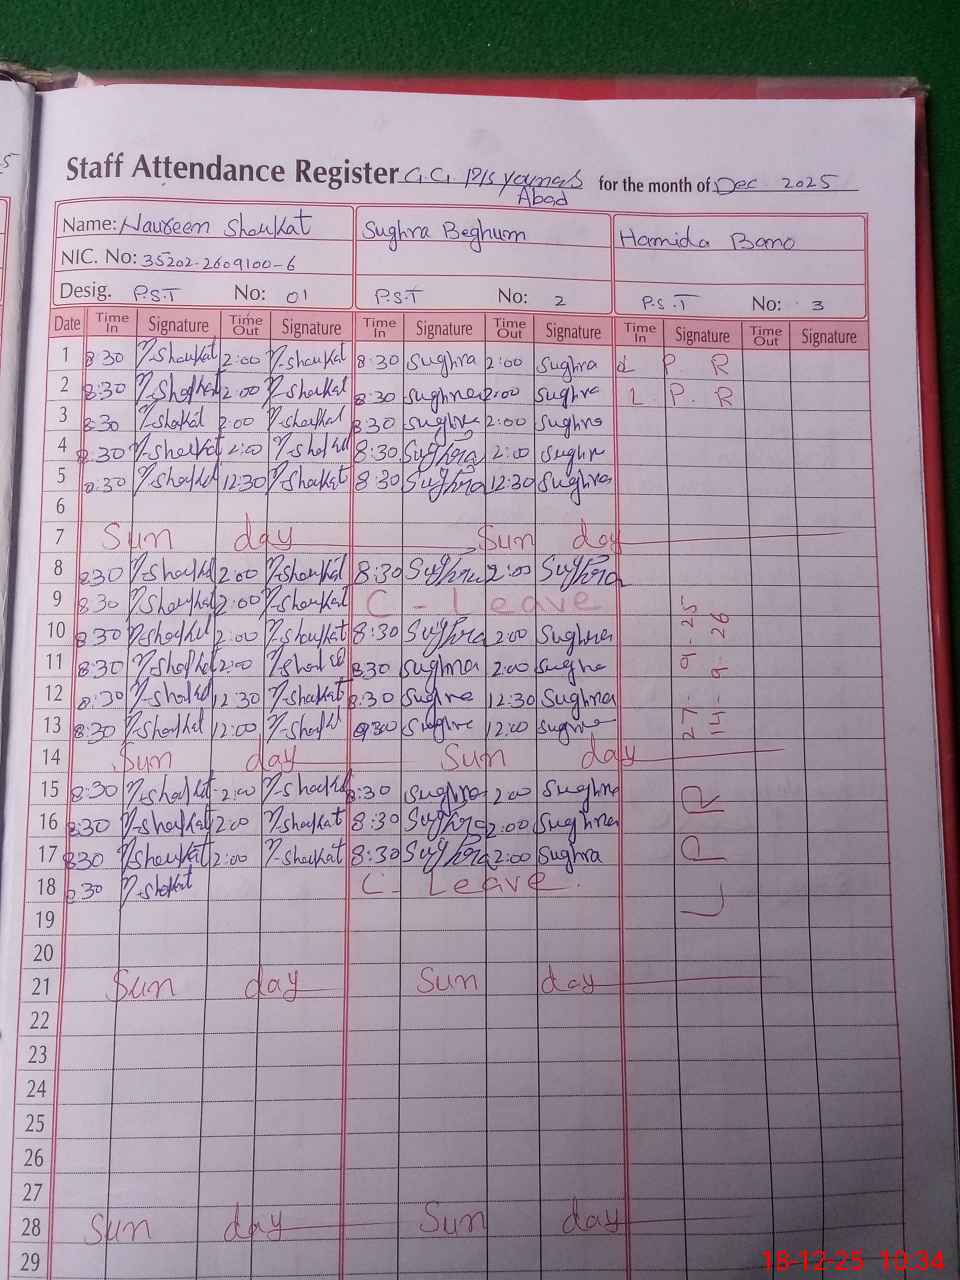 Staff Attendance Register G.C. P/S younas Abad for the month of Dec 2025
Name: Naureen Shoukat Sughra Beghum Hamida Bano
NIC. No: 35202-2609100-6
Desig. P.S.T No: 01 P.S.T No: 2 P.S.T No: 3
Date Time In Signature Time Out Signature Time In Signature Time Out Signature Time In Signature Time Out Signature
1 8:30 N-Shoukat 2:00 N-Shoukat 8:30 Sughra 2:00 Sughra L P. R
2 8:30 N-Shoukat 2:00 N-Shoukat 8:30 Sughra 2:00 Sughra L. P. R
3 8:30 N-Shoukat 2:00 N-Shoukat 8:30 Sughra 2:00 Sughra
4 8:30 N-Shoukat 2:00 N-Shoukat 8:30 Sughra 2:00 Sughra
5 8:30 N-Shoukat 12:30 N-Shoukat 8:30 Sughra 12:30 Sughra
6
7 Sun day Sun day
8 8:30 N-Shoukat 2:00 N-Shoukat 8:30 Sughra 2:00 Sughra
9 8:30 N-Shoukat 2:00 N-Shoukat C - Leave
10 8:30 N-Shoukat 2:00 N-Shoukat 8:30 Sughra 2:00 Sughra
11 8:30 N-Shoukat 2:00 N-Shoukat 8:30 Sughra 2:00 Sughra
12 8:30 N-Shoukat 12:30 N-Shoukat 8:30 Sughra 12:30 Sughra
13 8:30 N-Shoukat 12:00 N-Shoukat 8:30 Sughra 12:00 Sughra
14 Sun day Sun day
15 8:30 N-Shoukat 2:00 N-Shoukat 8:30 Sughra 2:00 Sughra
16 8:30 N-Shoukat 2:00 N-Shoukat 8:30 Sughra 2:00 Sughra
17 8:30 N-Shoukat 2:00 N-Shoukat 8:30 Sughra 2:00 Sughra
18 8:30 N-Shoukat C - Leave.
L P R 27-9-25
14-9-26
19
20
21 Sun day Sun day
22
23
24
25
26
27
28 Sun day Sun day
29
18-12-25 10:34